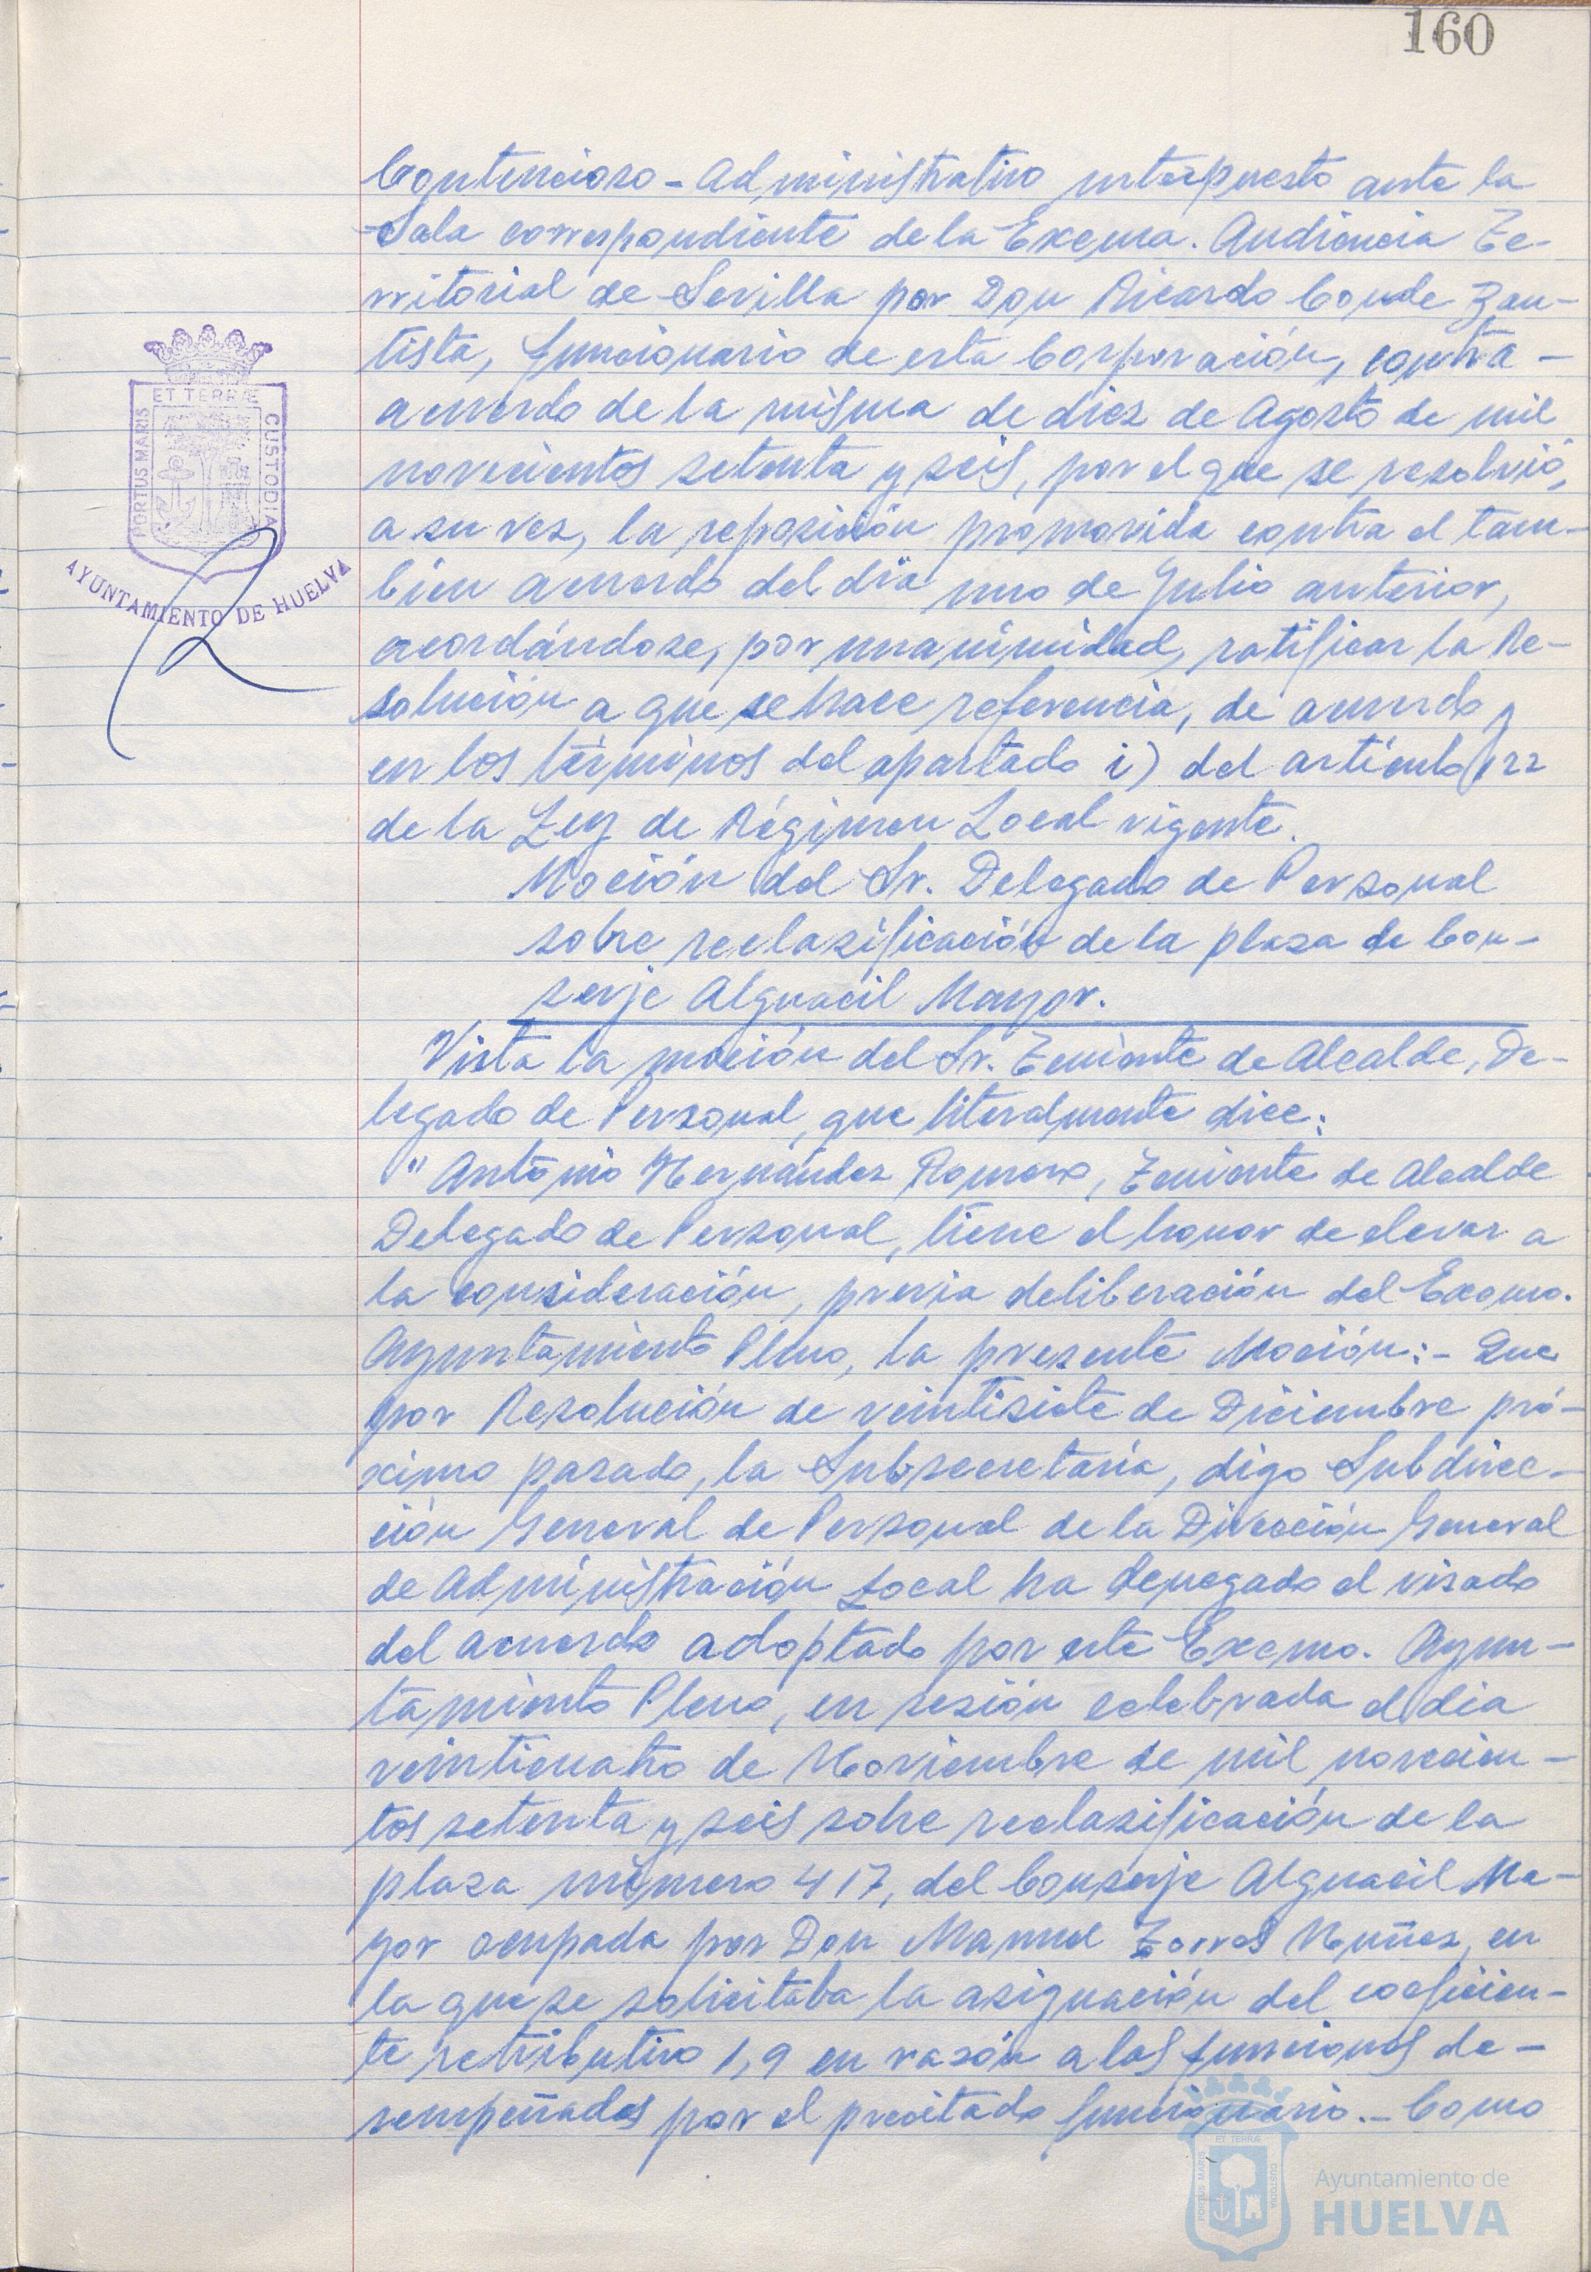 160
Contencioso-Administrativo interpuesto ante la
Sala correspondiente de la Excma. Audiencia Te-
rritorial de Sevilla por Don Ricardo Conde Bau-
tista, funcionario de esta Corporación, contra -
acuerdo de la misma de diez de Agosto de mil
novecientos setenta y seis, por el que se resolvió,
a su vez, la reposición promovida contra el tam-
bien acuerdo del día uno de Julio anterior,
acordándose, por unanimidad, ratificar la Re-
solución a que se hace referencia, de acuerdo
en los términos del apartado i) del artículo 122
de la Ley de Régimen Local vigente.
Moción del Sr. Delegado de Personal
sobre reclasificación de la plaza de Con-
serje Alguacil Mayor.
Vista la moción del Sr. Teniente de Alcalde, De-
legado de Personal, que literalmente dice:
"Antonio Hernández Romero, Teniente de Alcalde
Delegado de Personal, tiene el honor de elevar a
la consideración, previa deliberación del Excmo.
Ayuntamiento Pleno, la presente Moción:- Que
por Resolución de veintisiete de Diciembre pró-
ximo pasado, la Subsecretaría, digo Subdirec-
ción General de Personal de la Dirección General
de Administración Local ha denegado el visado
del acuerdo adoptado por este Excmo. Ayun-
tamiento Pleno, en sesión celebrada el dia
veinticuatro de Noviembre de mil novecien-
tos setenta y seis sobre reclasificación de la
plaza número 417, del Conserje Alguacil Ma-
yor ocupada por Don Manuel Torres Nuñez, en
la que se solicitaba la asignación del coeficien-
te retributivo 1,9 en razón a las funciones de-
sempeñadas por el precitado funcionario.- Como
PORTUS MARIS
ET TERRÆ
CUSTODIA
AYUNTAMIENTO DE HUELVA
PORTUS MARIS
ET TERRÆ
CUSTODIA
Ayuntamiento de
HUELVA